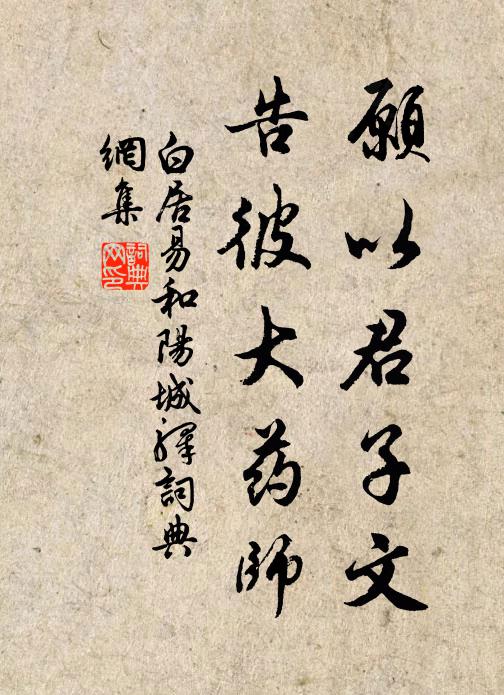 願以君子文
告彼大药師
白居易和陽城驛詞典
網集
詞典
网印